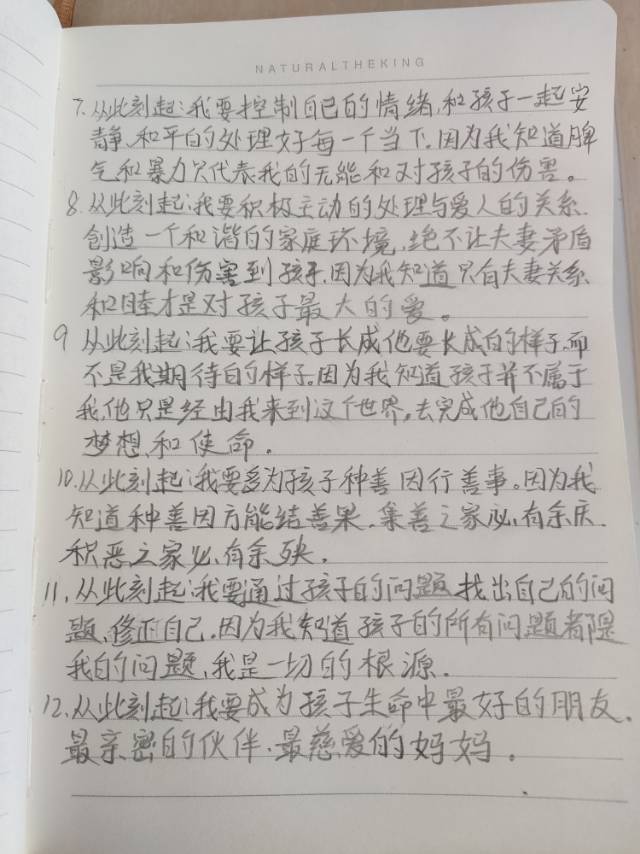 NATURALTHEKING
7. 从此刻起:我要控制自己的情绪,和孩子一起安
静、和平的处理好每一个当下,因为我知道脾
气和暴力只代表我的无能和对孩子的伤害。
8. 从此刻起:我要积极主动的处理与爱人的关系,
创造一个和谐的家庭环境,绝不让夫妻矛盾
影响和伤害到孩子,因为我知道只有夫妻关系
和睦才是对孩子最大的爱。
9 从此刻起:我要让孩子长成他要长成的样子,而
不是我期待的样子,因为我知道孩子并不属于
我,他只是经由我来到这个世界,去完成他自己的
梦想和使命。
10. 从此刻起:我要多为孩子种善因行善事。因为我
知道种善因方能结善果,集善之家必有余庆,
积恶之家必有余殃。
11. 从此刻起:我要通过孩子的问题,找出自己的问
题,修正自己,因为我知道孩子的所有问题都是
我的问题,我是一切的根源.
12. 从此刻起:我要成为孩子生命中最好的朋友、
最亲密的伙伴、最慈爱的妈妈。